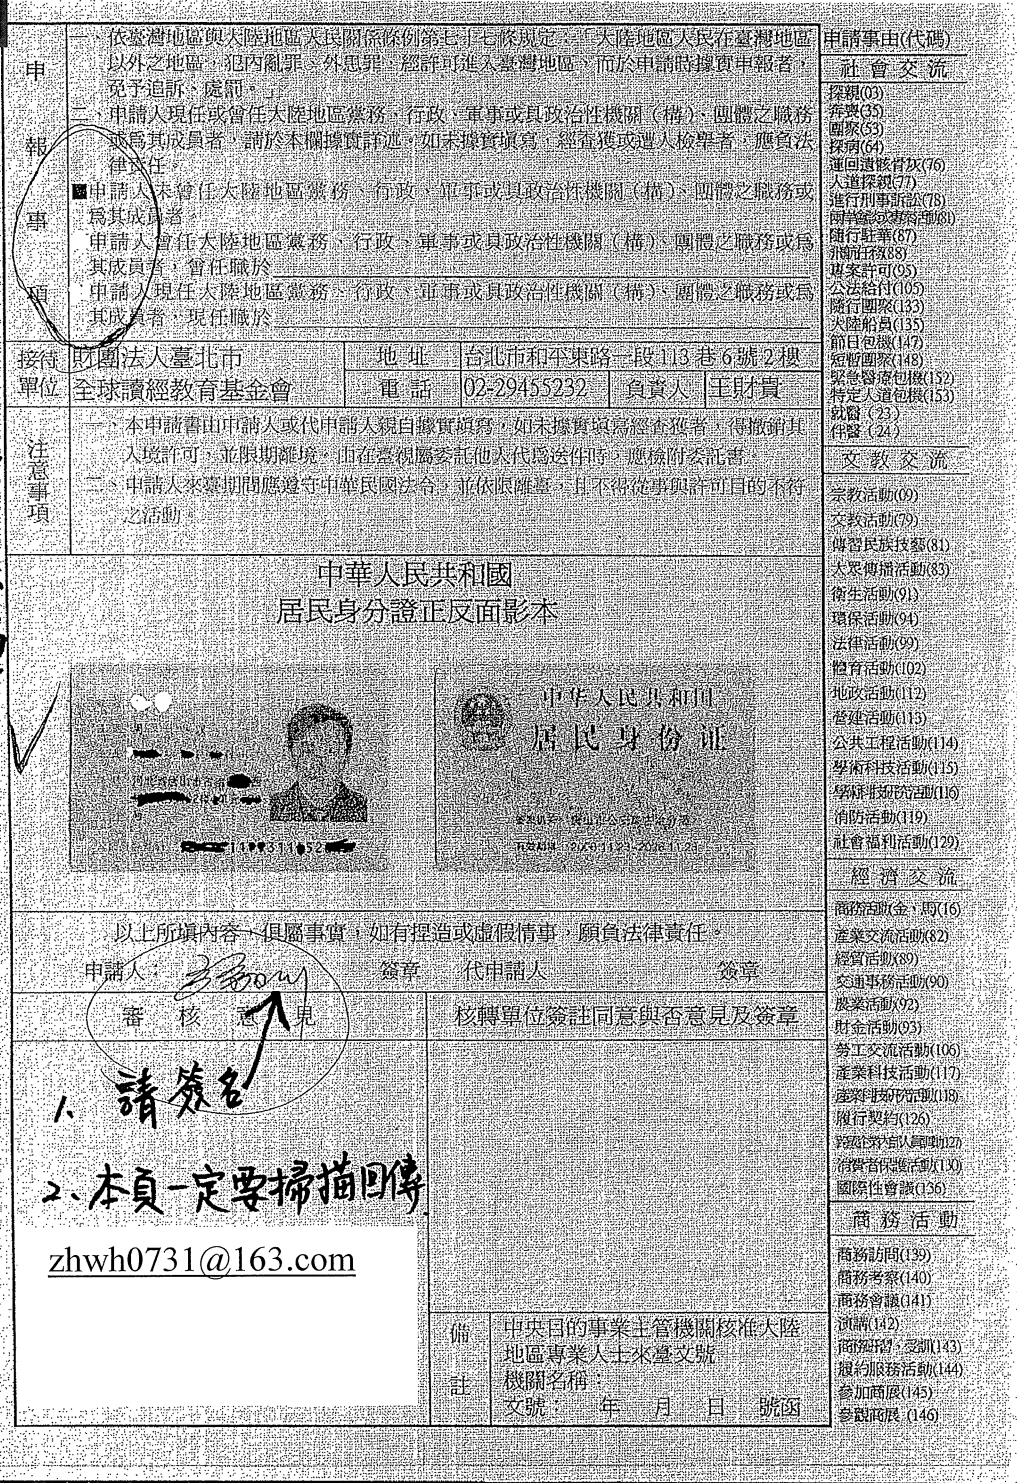 申報事項
一、依臺灣地區與大陸地區人民關係條例第七十七條規定：「大陸地區人民在臺灣地區
以外之地區，犯內亂罪、外患罪，經許可進入臺灣地區，而於申請時據實申報者，
免予追訴、處罰。」
二、申請人現任或曾任大陸地區黨務、行政、軍事或具政治性機關（構）、團體之職務
或為其成員者，請於本欄據實詳述。如未據實填寫，經查獲或遭人檢舉者，應負法
律責任。
■申請人未曾任大陸地區黨務、行政、軍事或具政治性機關（構）、團體之職務或
為其成員者。
申請人曾任大陸地區黨務、行政、軍事或具政治性機關（構）、團體之職務或為
其成員者，曾任職於
申請人現任大陸地區黨務、行政、軍事或具政治性機關（構）、團體之職務或為
其成員者，現任職於
接待
單位
財團法人臺北市
全球讀經教育基金會
地址
台北市和平東路一段113巷6號2樓
電話
02-29455232
負責人
王財貴
注意事項
一、本申請書由申請人或代申請人親自據實填寫，如未據實填寫經查獲者，得撤銷其
入境許可，並限期離境。由在臺親屬委託他人代為送件時，應檢附委託書。
二、申請人來臺期間應遵守中華民國法令，並依限離臺，且不得從事與許可目的不符
之活動。
中華人民共和國
居民身分證正反面影本
中华人民共和国
居民身份证
以上所填內容，俱屬事實，如有捏造或虛假情事，願負法律責任。
申請人：
簽章
代申請人
簽章
審核意見
核轉單位簽註同意與否意見及簽章
1、請簽名
2、本頁一定要掃描回傳.
zhwh0731@163.com
備註
中央目的事業主管機關核准大陸
地區專業人士來臺文號
機關名稱：
文號：　年　月　日　號函
申請事由(代碼)
社會交流
探親(03)
奔喪(35)
團聚(53)
探病(64)
運回遺骸骨灰(76)
人道探親(77)
進行刑事訴訟(78)
隨行駐華(87)
飛航任務(88)
專案許可(95)
公法給付(105)
隨行團聚(133)
大陸船員(135)
節日包機(147)
短暫團聚(148)
緊急醫療包機(152)
特定人道包機(153)
就醫（23）
伴醫（24）
文教交流
宗教活動(09)
文教活動(79)
傳習民族技藝(81)
大眾傳播活動(83)
衛生活動(91)
環保活動(94)
法律活動(99)
體育活動(102)
地政活動(112)
營建活動(113)
公共工程活動(114)
學術科技活動(115)
學術科技研究活動(116)
消防活動(119)
社會福利活動(129)
經濟交流
商務活動(金、馬(16)
產業交流活動(82)
經貿活動(89)
交通事務活動(90)
農業活動(92)
財金活動(93)
勞工交流活動(106)
產業科技活動(117)
產業科技研究活動(118)
履行契約(126)
消費者保護活動(130)
國際性會議(136)
商務活動
商務訪問(139)
商務考察(140)
商務會議(141)
演講(142)
商務研習、受訓(143)
履約服務活動(144)
參加商展(145)
參觀商展 (146)